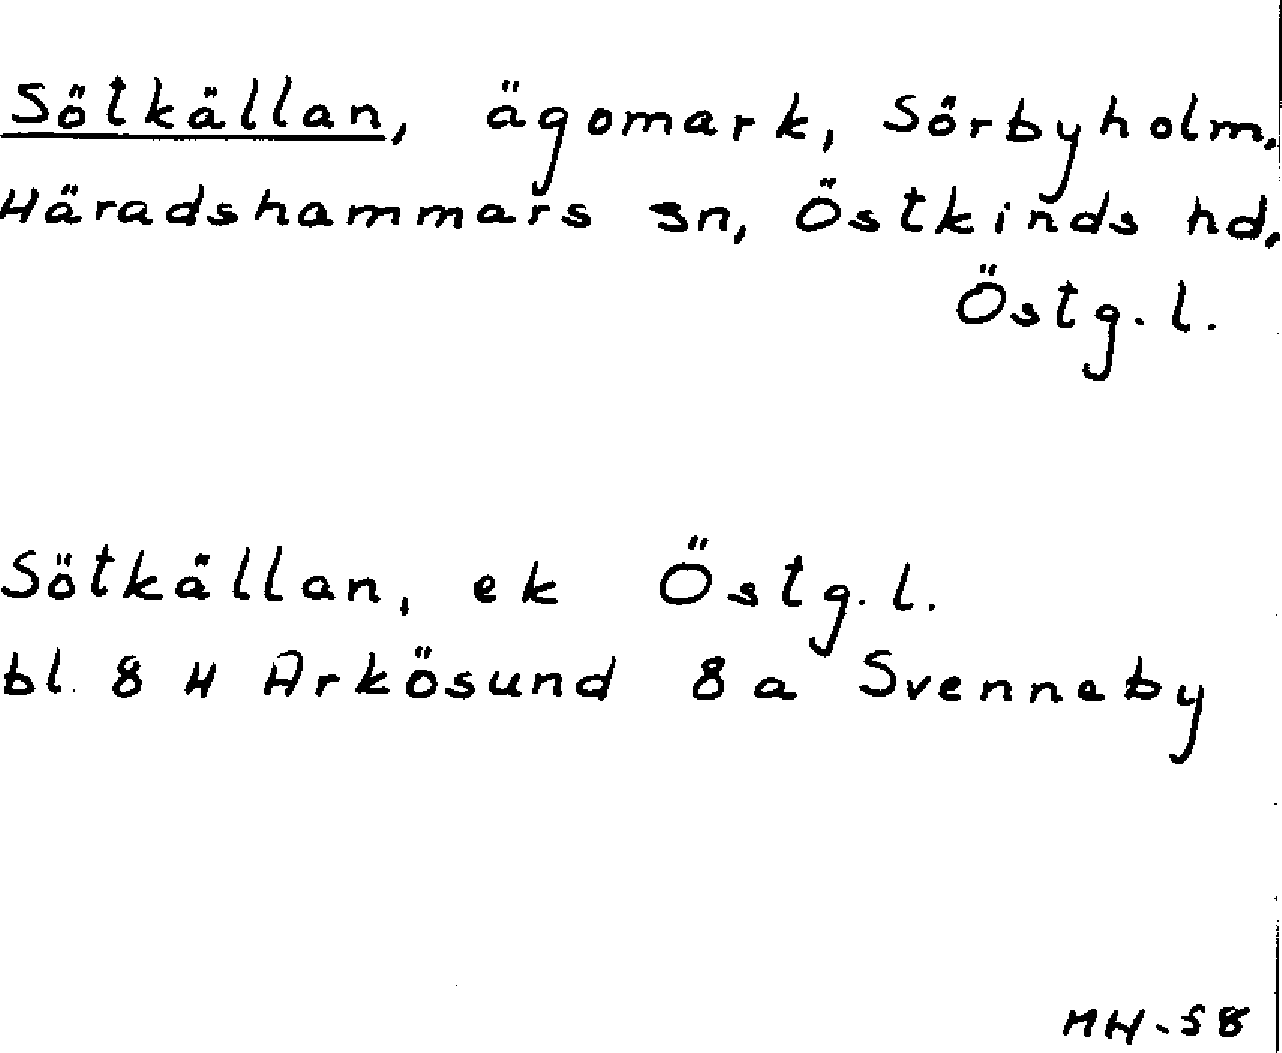 Sötkällan, ägomark, Sörbyholm,
Häradshammars sn, Östkinds hd,
Östg. l.
Sötkällan, ek Östg. l.
bl. 8 H Arkösund 8 a Svenneby
MH-58